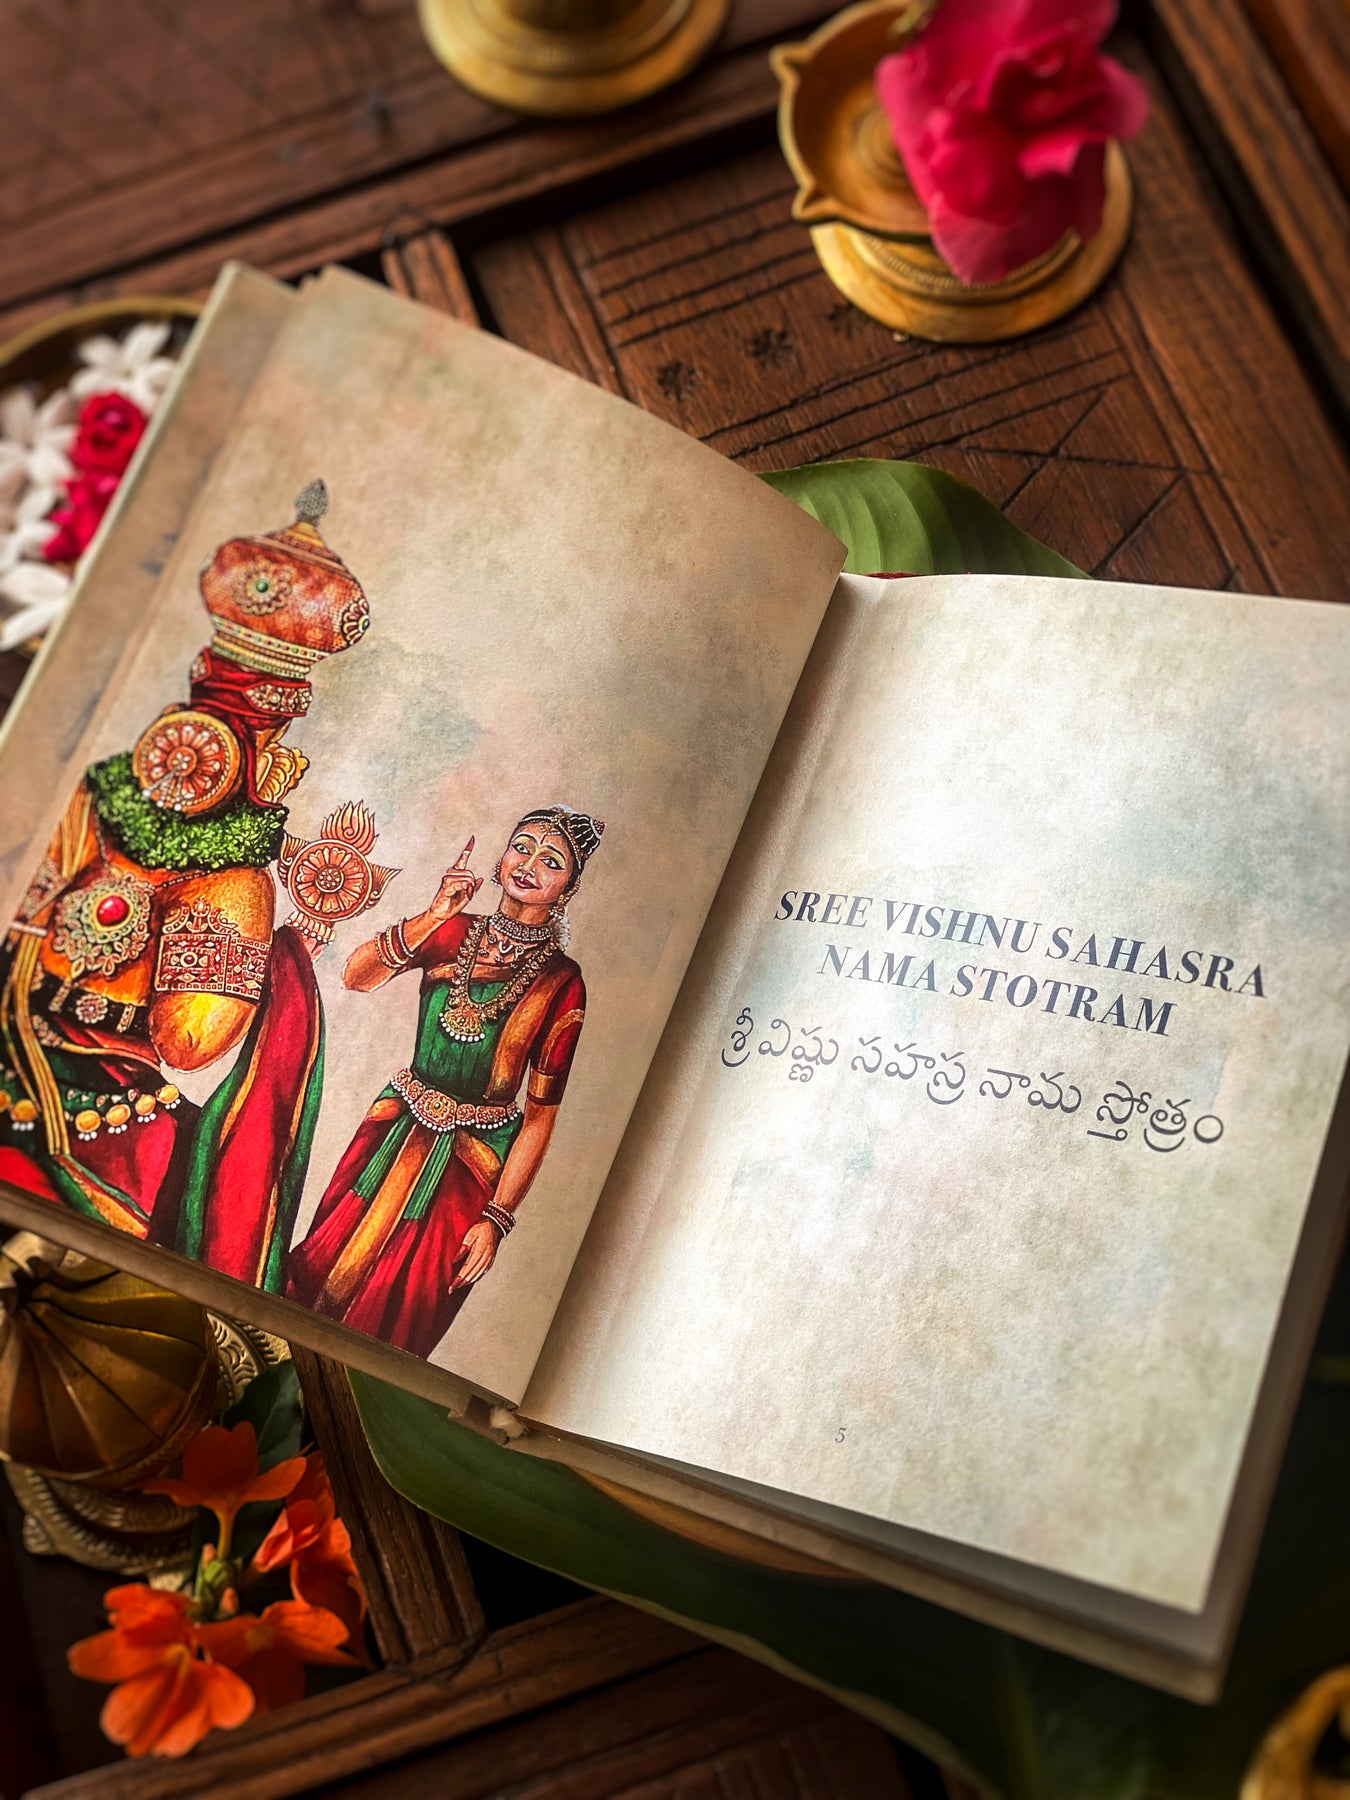 SREE VISHNU SAHASRA
NAMA STOTRAM
శ్రీ విష్ణు సహస్ర నామ స్తోత్రం
5